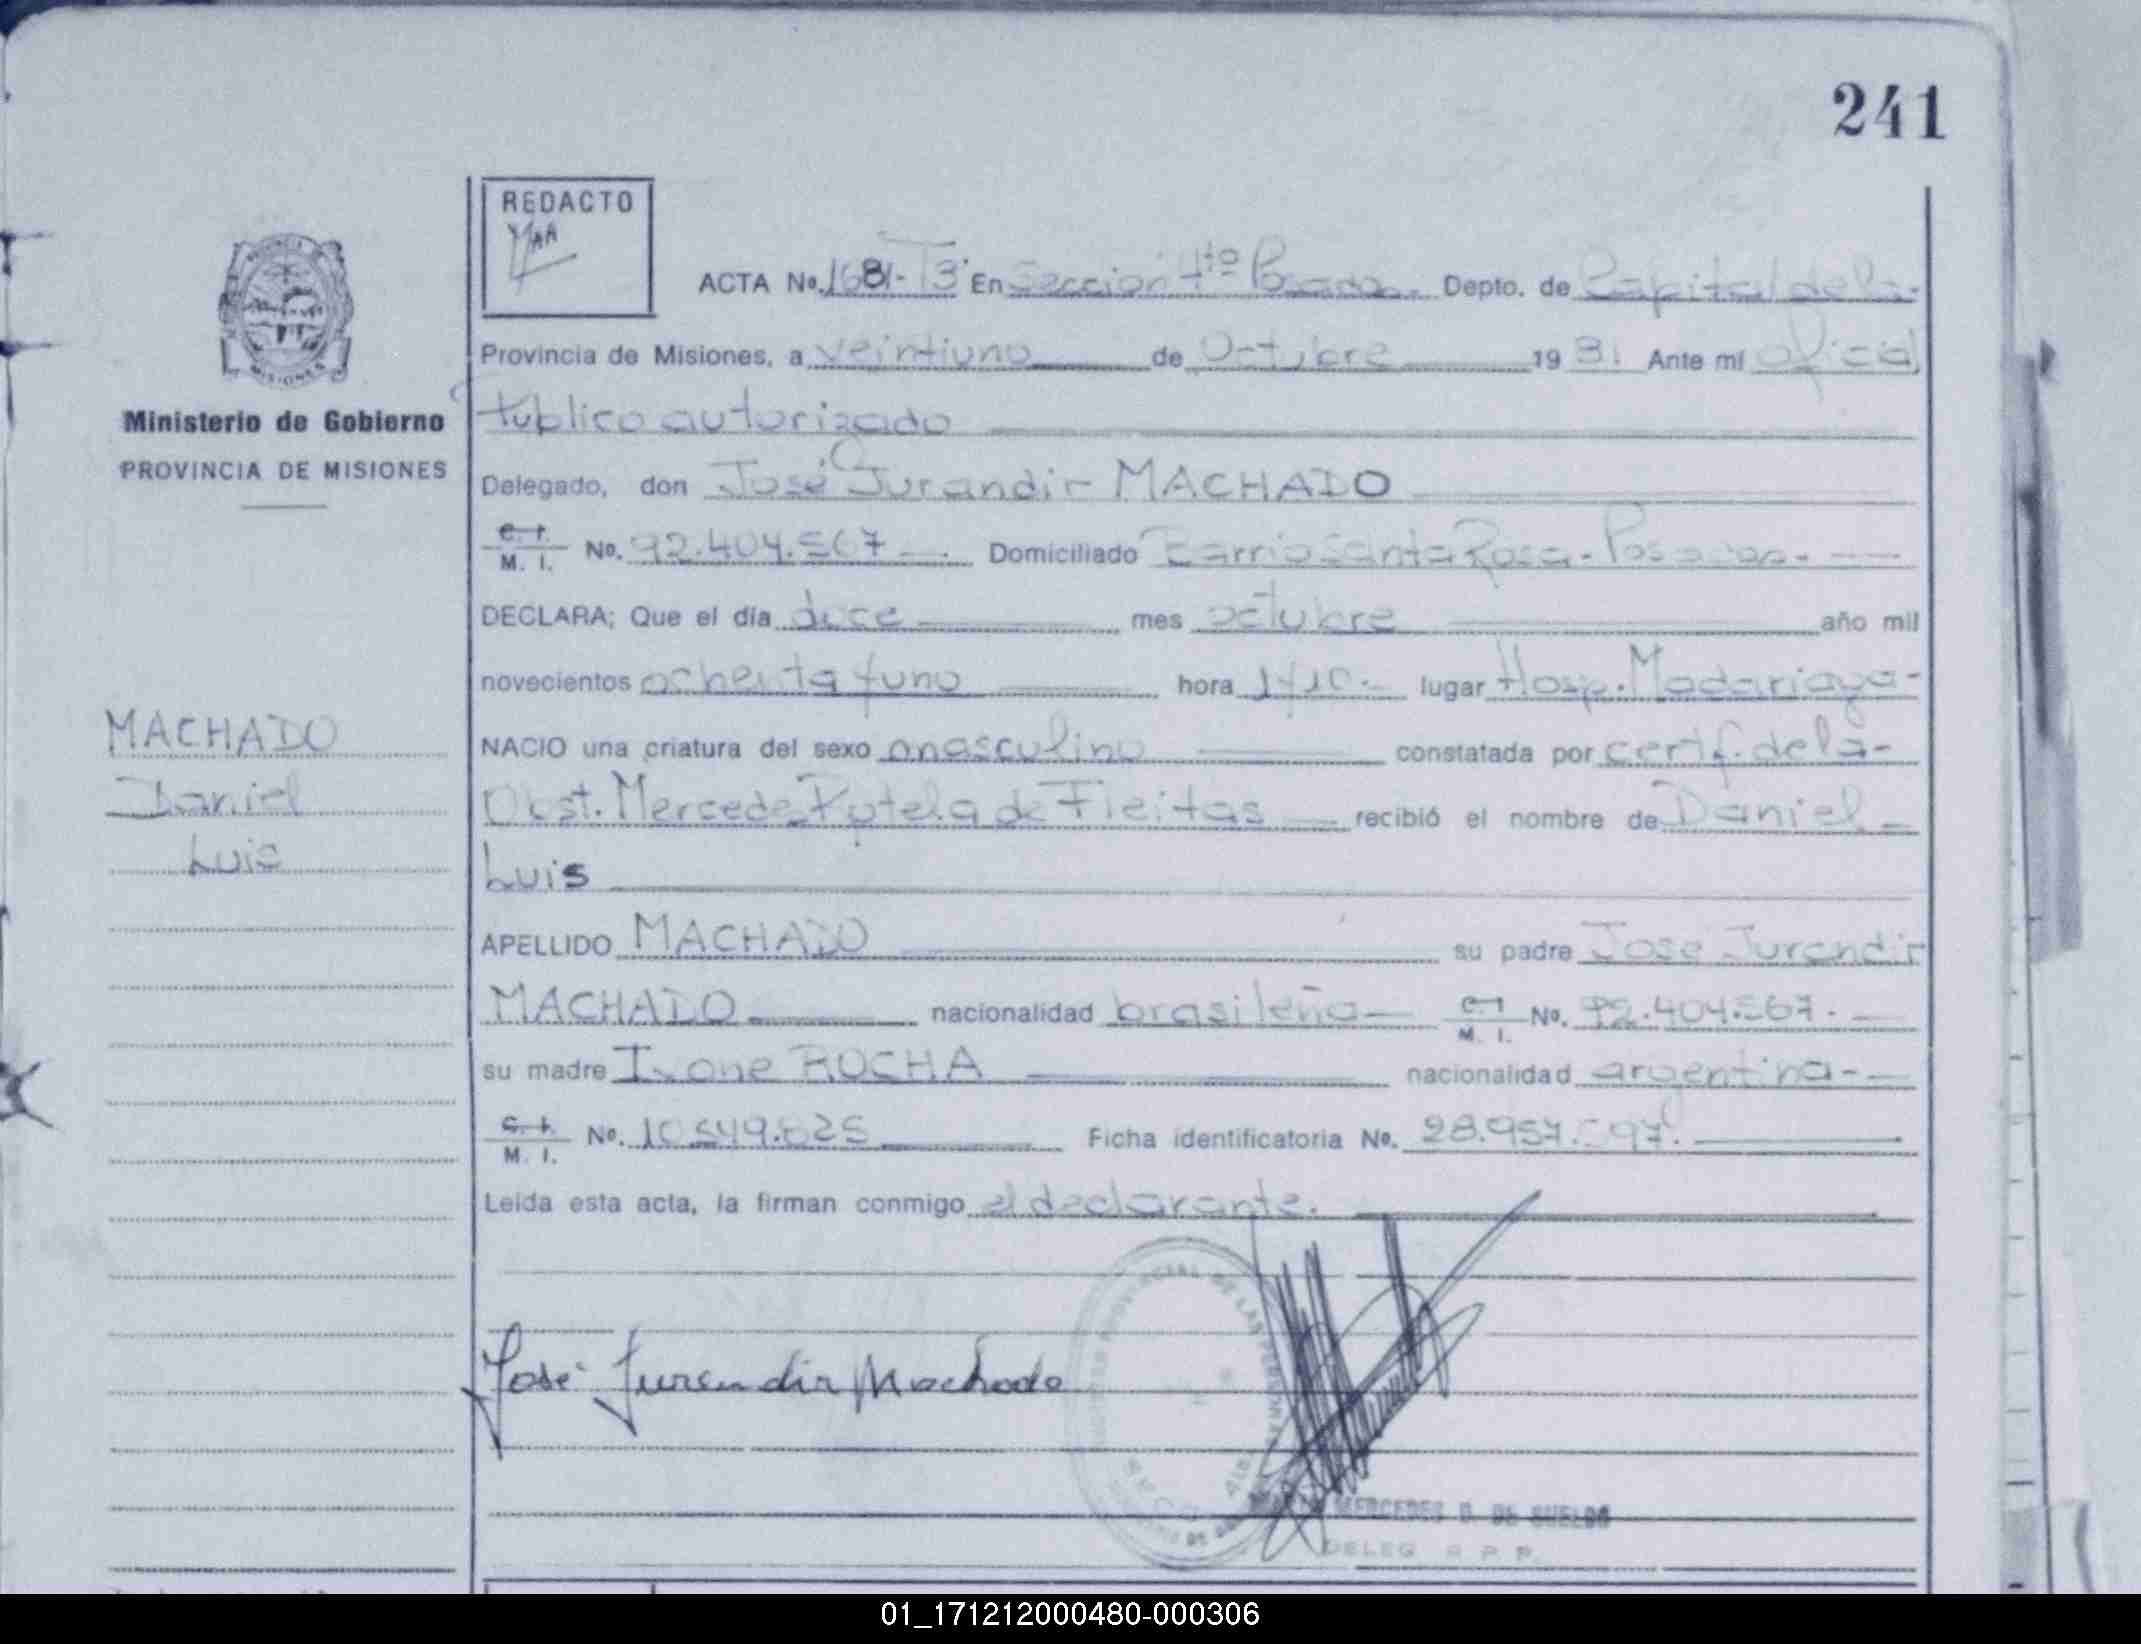 241
REDACTO
ACTA No. 1681-T3 En Sección 4to Posadas. Depto. de Capital de la-
Provincia de Misiones, a veintiuno de Octubre 1981. Ante mí oficial
Público autorizado
Ministerio de Gobierno
PROVINCIA DE MISIONES
Delegado, don José Jurandir MACHADO
C. I. M. I. No. 92.404.567 Domiciliado Barrio Santa Rosa - Posadas-
DECLARA; Que el día doce mes octubre año mil
novecientos ochenta y uno hora lugar Hosp. Madariaga-
MACHADO
Daniel
Luis
NACIO una criatura del sexo masculino constatada por certf. de la-
Obst. Mercedes de Fleitas recibió el nombre de Daniel
Luis
APELLIDO MACHADO su padre José Jurandir
MACHADO nacionalidad brasileña C. I. M. I. No. 92.404.567.
su madre Ivone ROCHA nacionalidad argentina-
C. I. M. I. No. Ficha identificatoria No. 28.957.
Leida esta acta, la firman conmigo el declarante.
José Jurandir Machado
MERCEDES B. DE SUELDO
DELEG R P P.
01_171212000480-000306